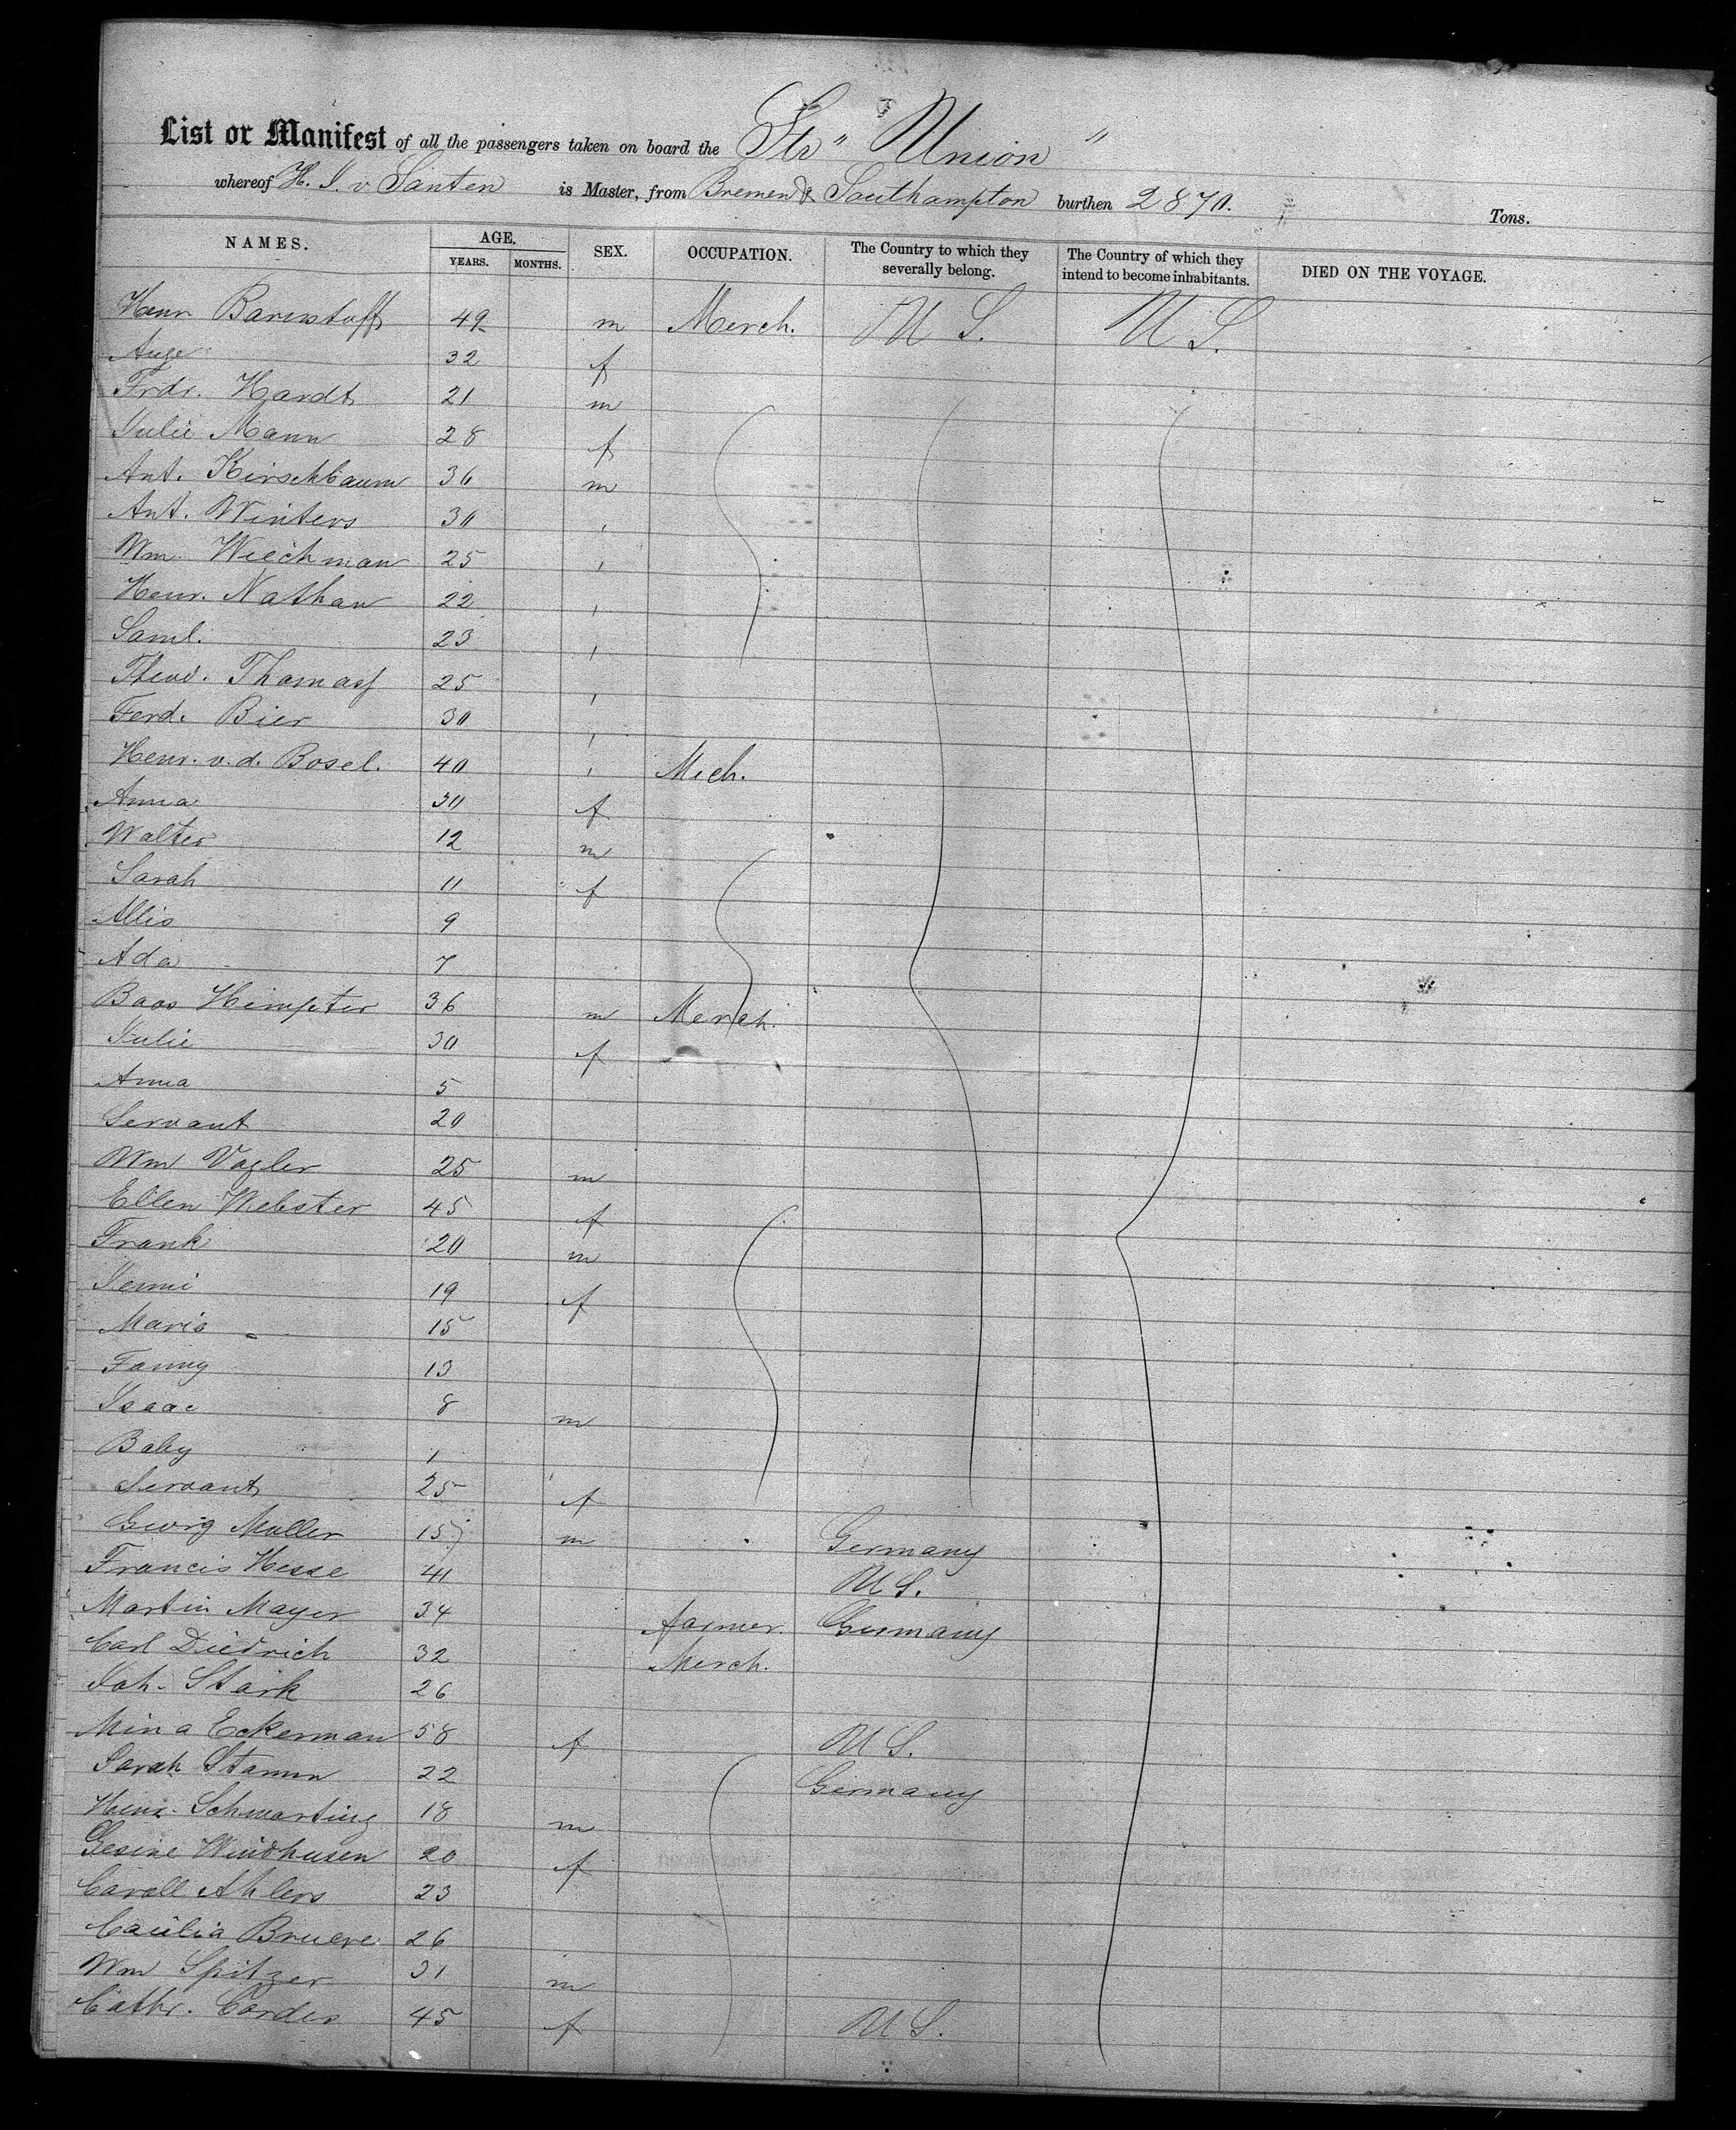 List or Manifest of all the passengers taken on board the Str " Union "
whereof H. J. v Santen is Master, from Bremen & Southampton burthen 2870. Tons.
NAMES. AGE. SEX. OCCUPATION. The Country to which they severally belong. The Country of which they intend to become inhabitants. DIED ON THE VOYAGE.
YEARS. MONTHS.
Henr 49 m Merch. U S. U S.
32 f
Frdr. Hardt 21 m
Julie Mann 28 f
Ant. Kirschbaum 30 m
Ant. Winters 30 '
Wm. Wiechman 25 '
Henr. Nathan 22 '
Saml. 23 '
Theod. Thomass 25 '
Ferd. Bier 30 '
Henr. v. d. Bosel. 40 ' Mech.
Anna 30 f
Walter 12 m
Sarah 11 f
Allis 9
Ada 7
Baos Himpter 36 m Merch.
Julie 30 f
Anna 5
Servant 20
Wm Vogler 25 m
Ellen Webster 45 f
Frank 20 m
Jenni 19 f
Maria 15
Fanny 13
Isaac 8 m
Baby 1
Servant 25 f
Georg Muller 15 m Germany
Francis Hesse 41 U S.
Martin Mayer 34 farmer. Germany
Carl Diedrich 32 Merch.
Joh. Stark 26
Mina Eckerman 58 f U S.
Sarah Stamm 22 Germany
Henr. Schwarting 18 m
Gesine Windhusen 20 f
Caroll Ahlers 23
Caecilia Bruere 26
Wm Spitzer 31 m
Cathr. Cordes 45 f U S.